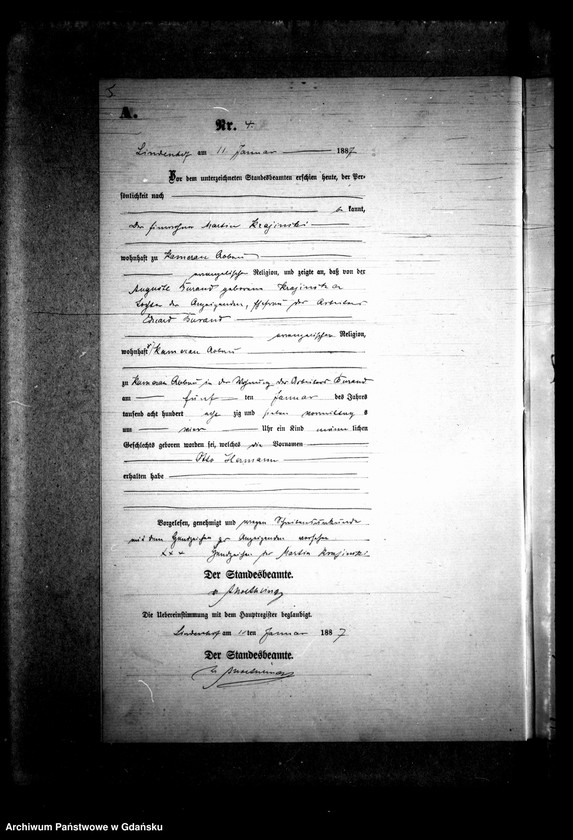 A.
Nr. 4.
Lindenhof am 11. Januar 1887
Vor dem unterzeichneten Standesbeamten erschien heute, der Per-
sönlichkeit nach
be kannt,
der Einwohner Martin Krajinski
wohnhaft zu Kameran Aobau
evangelischer Religion, und zeigte an, daß von der
Auguste Durand geborene Krajinska
Tochter des Anzeigenden, Ehefrau des Arbeiters
Eduard Durand
evangelischer Religion,
wohnhaft Kameran Aobau
zu Kameran Aobau in der Wohnung des Arbeiters Durand
am fünf ten Januar des Jahres
tausend acht hundert acht zig und sieben vormittag s
um vier Uhr ein Kind männ lichen
Geschlechts geboren worden sei, welches die Vornamen
Otto Hermann
erhalten habe
Vorgelesen, genehmigt und wegen Schreibensunkunde
mit dem Handzeichen des Anzeigenden versehen
xxx Handzeichen des Martin Krajinski
Der Standesbeamte.
Die Uebereinstimmung mit dem Hauptregister beglaubigt.
Lindenhof am 11 ten Januar 1887
Der Standesbeamte.
Archiwum Państwowe w Gdańsku